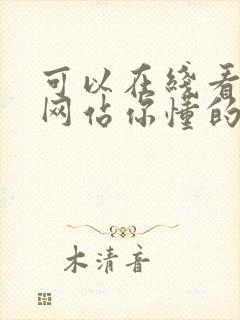 可以在线看
网佔你懂的
木清音